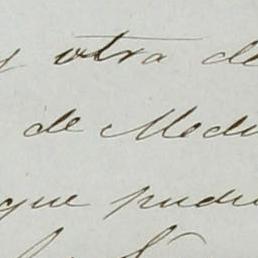 y otra de
de Medi
que pudie